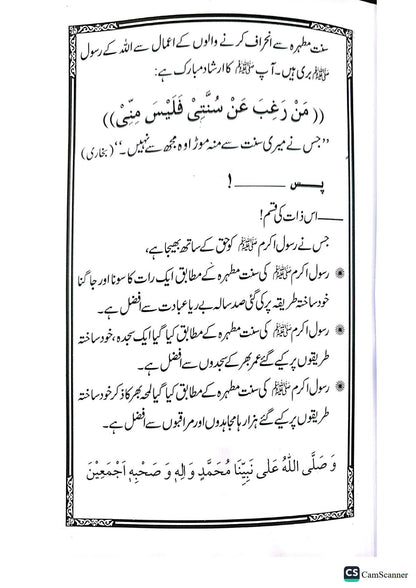 سنت مطہرہ سے انحراف کرنے والوں کے اعمال سے اللہ کے رسول
ﷺ بری ہیں۔ آپ ﷺ کا ارشاد مبارک ہے:
(( مَنْ رَغِبَ عَنْ سُنَّتِیْ فَلَیْسَ مِنِّیْ))
"جس نے میری سنت سے منہ موڑا وہ مجھ سے نہیں۔" (بخاری)
پس ـــــــ !
ـــــ اس ذات کی قسم!
جس نے رسول اکرم ﷺ کو حق کے ساتھ بھیجا ہے،
رسول اکرم ﷺ کی سنت مطہرہ کے مطابق ایک رات کا سونا اور جاگنا
خود ساختہ طریقہ پر کی گئی صد سالہ بے ریا عبادت سے افضل ہے۔
رسول اکرم ﷺ کی سنت مطہرہ کے مطابق کیا گیا ایک سجدہ، خود ساختہ
طریقوں پر کیے گئے عمر بھر کے سجدوں سے افضل ہے۔
رسول اکرم ﷺ کی سنت مطہرہ کے مطابق کیا گیا لمحہ بھر کا ذکر خود ساختہ
طریقوں پر کیے گئے ہزار ہا مجاہدوں اور مراقبوں سے افضل ہے۔
وَ صَلَّی اللّٰہُ عَلٰی نَبِیِّنَا مُحَمَّدٍ وَ اٰلِہٖ وَ صَحْبِہٖ اَجْمَعِیْنَ
CS CamScanner